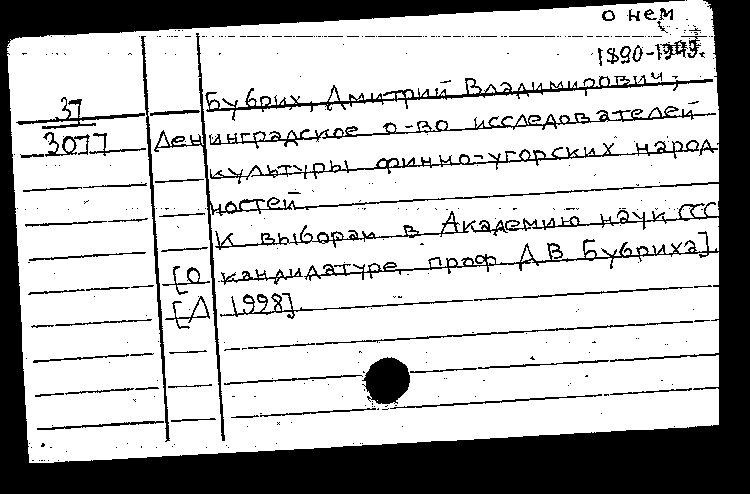 о нем
1890-1949.
Бубрих, Дмитрий Владимирович;
37
3077
Ленинградское о-во исследователей
культуры финно-угорских народ
ностей.
К выборам в Академию наук ССС
[О кандидатуре проф Д В Бубриха].
[Л 1998].